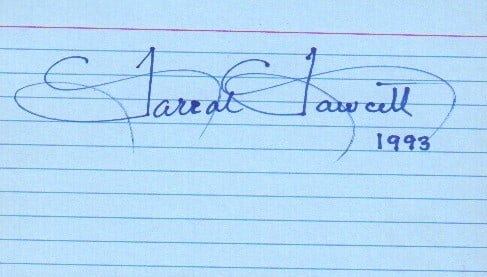 Farrah Fawcett
1993